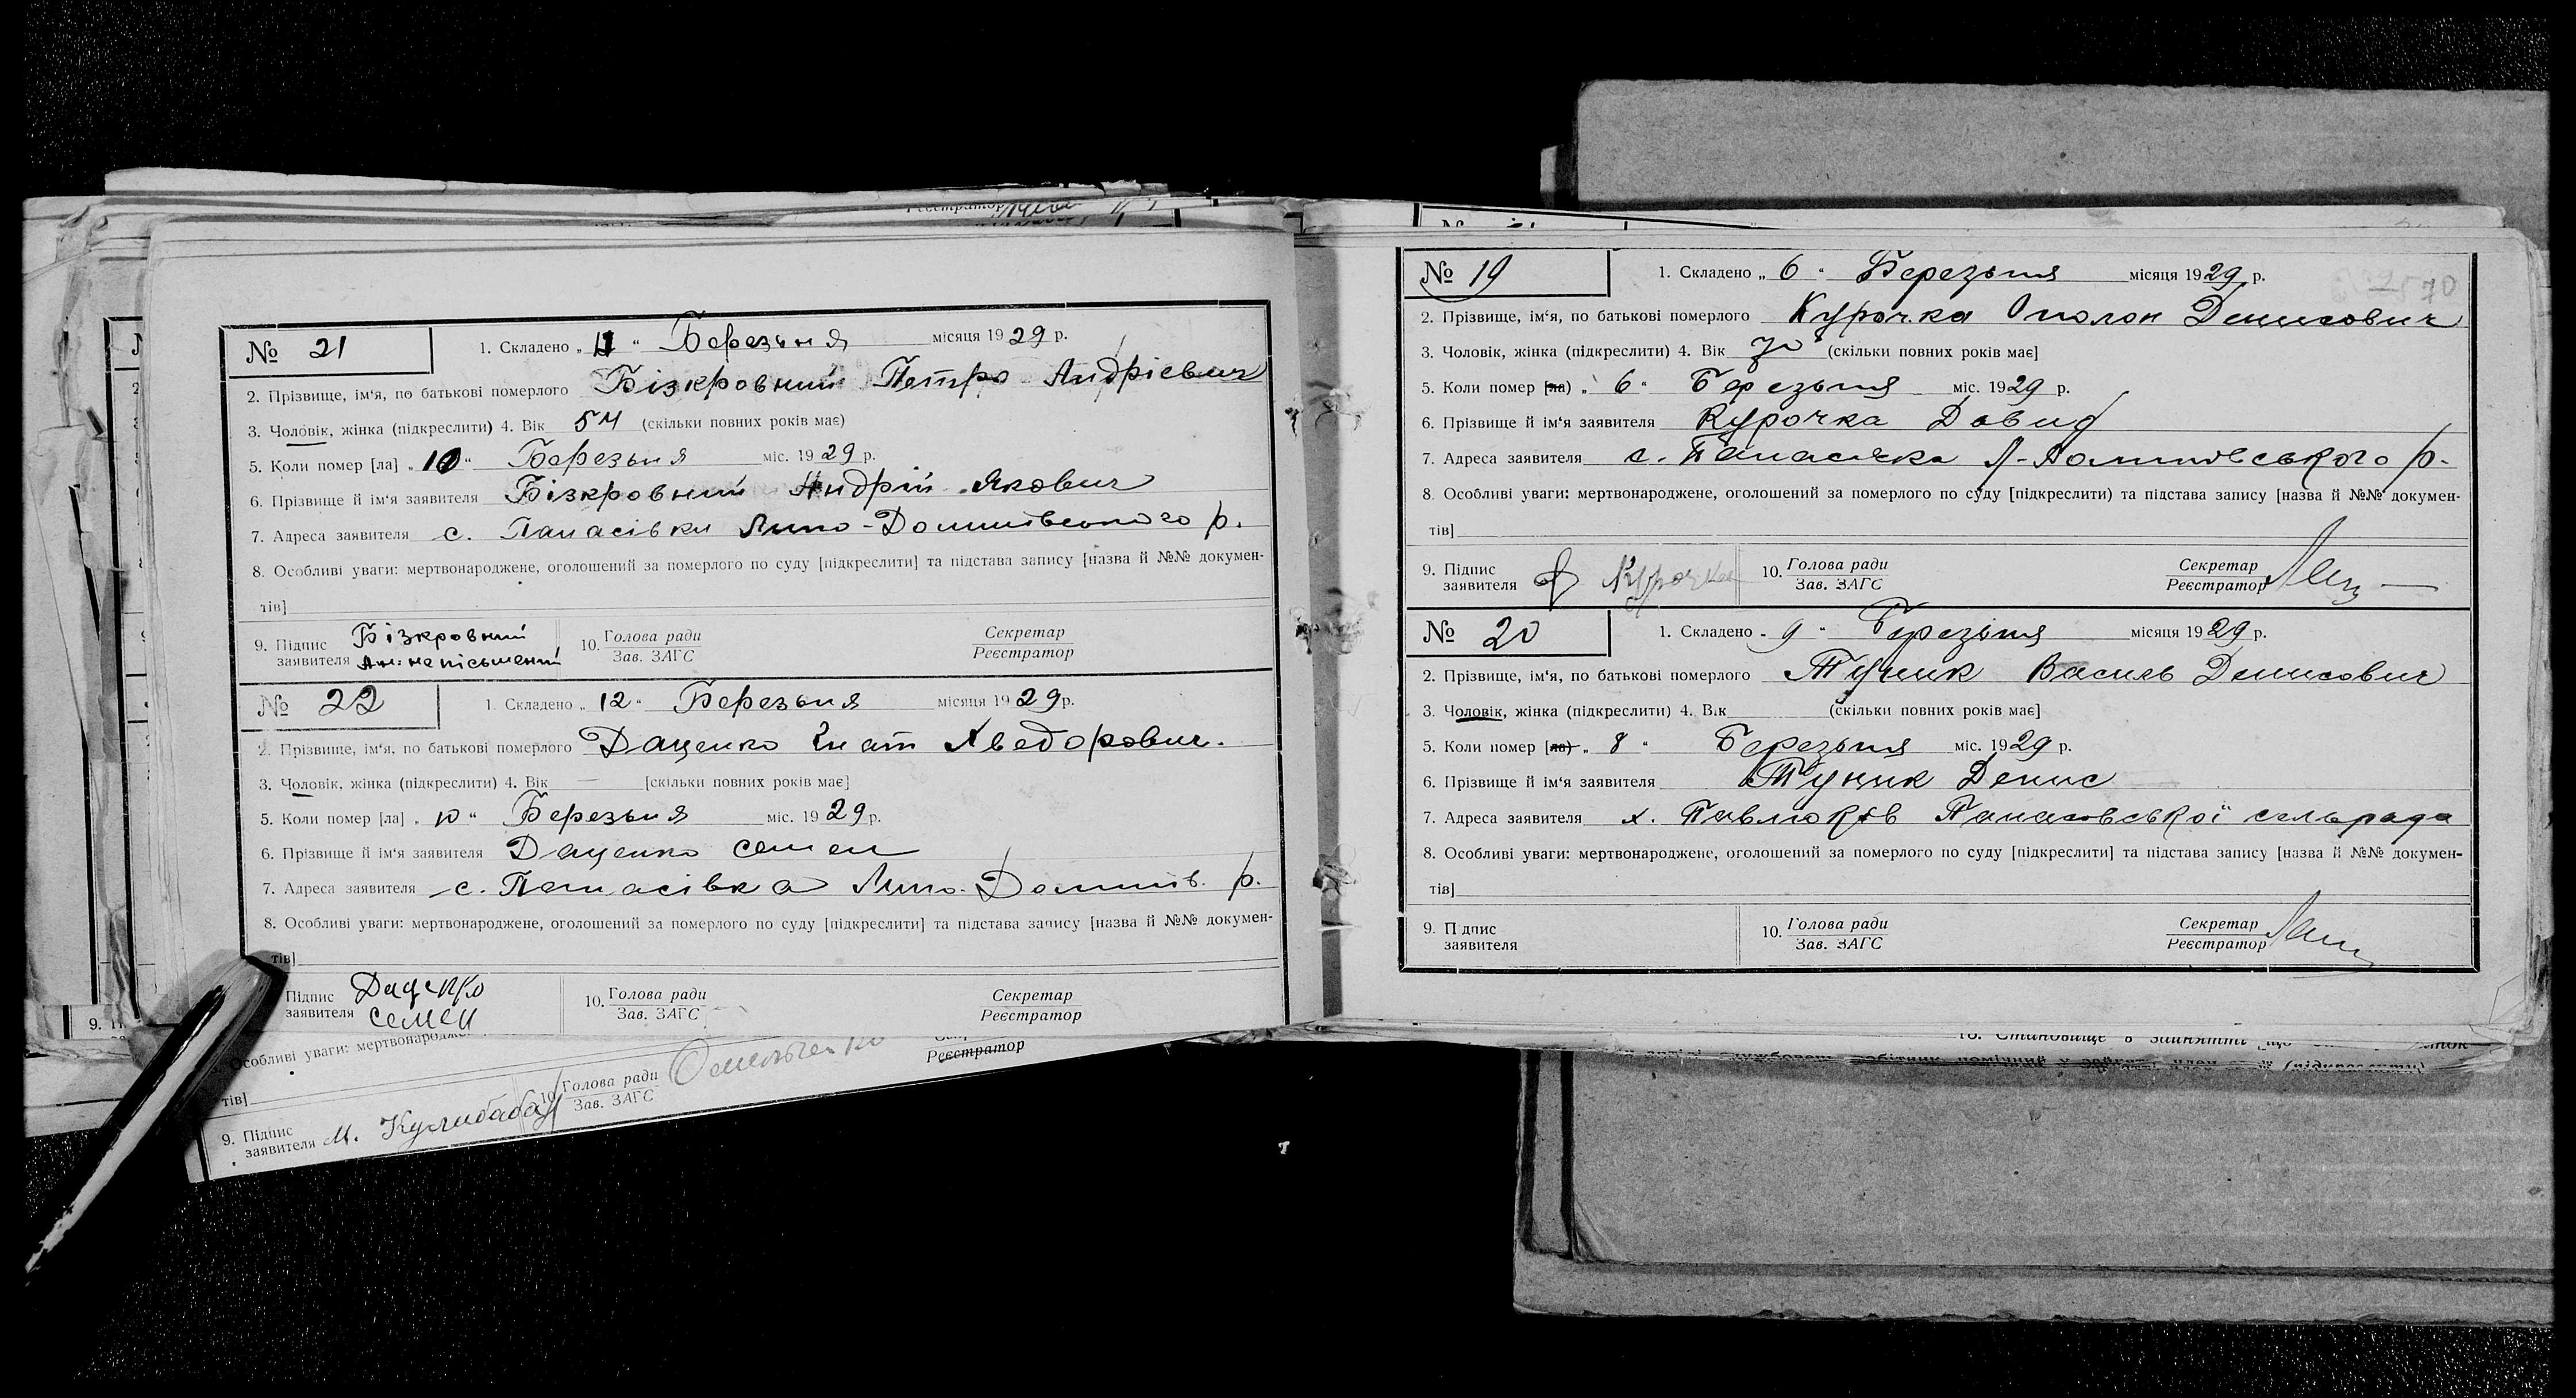 № 21
1. Складено „ 11 “ Березьня місяця 1929 р.
2. Прізвище, ім‘я, по батькові померлого Бізкровний Петро Андрієвич
3. Чоловік, жінка (підкреслити) 4. Вік 5м (скільки повних років має)
5. Коли помер [ла] „ 10 “ Березьня міс. 1929 р.
6. Прізвище й ім‘я заявителя Бізкровний Андрій Якович
7. Адреса заявителя с. Панасівки Липо-Долинівського р.
8. Особливі уваги: мертвонароджене, оголошений за померлого по суду [підкреслити] та підстава запису [назва й №№ докумен-
тів]
9. Підпис заявителя Бізкровний Ан. не пісьмений 10. Голова ради Зав. ЗАГС Секретар Реєстратор
№ 22
1. Складено „ 12 “ Березьня місяця 1929 р.
2. Прізвище, ім‘я, по батькові померлого Даценко Гнат Хведорович.
3. Чоловік, жінка (підкреслити) 4. Вік — [скільки повних років має]
5. Коли помер [ла] „ 10 “ Березьня міс. 1929 р.
6. Прізвище й ім‘я заявителя Даценко Семен
7. Адреса заявителя с. Панасівка Липо-Долинів. р.
8. Особливі уваги: мертвонароджене, оголошений за померлого по суду [підкреслити] та підстава запису [назва й №№ докумен-
тів]
Підпис заявителя Даценко Семен 10. Голова ради Зав. ЗАГС Секретар Реєстратор
Особливі уваги: мертвонародже
тів]
9. Підпис заявителя М. Кулибаба 10. Голова ради Зав. ЗАГС Омельченко Реєстратор
№ 19
1. Складено „ 6 “ Березьня місяця 1929 р.
2. Прізвище, ім‘я, по батькові померлого Курочка Денисович
3. Чоловік, жінка (підкреслити) 4. Вік 70 (скільки повних років має]
5. Коли помер [ла) „ 6 “ Березьня міс. 1929 р.
6. Прізвище й ім‘я заявителя Курочка Давид
7. Адреса заявителя с. Панасівка Л-Долинівського р.
8. Особливі уваги: мертвонароджене, оголошений за померлого по суду [підкреслити) та підстава запису [назва й №№ докумен-
тів]
9. Підпис заявителя Курочка 10. Голова ради Зав. ЗАГС Секретар Реєстратор
№ 20
1. Складено „ 9 “ Березіня місяця 1929 р.
2. Прізвище, ім‘я, по батькові померлого Тучик Василь Денисович
3. Чоловік, жінка (підкреслити) 4. Вік (скільки повних років має]
5. Коли помер [ла) „ 8 “ Березьня міс. 1929 р.
6. Прізвище й ім‘я заявителя Денис
7. Адреса заявителя х. Павлюків Панасовської сельрада
8. Особливі уваги: мертвонароджене, оголошений за померлого по суду [підкреслити] та підстава запису [назва й №№ докумен-
тів]
9. П дпис заявителя 10. Голова ради Зав. ЗАГС Секретар Реєстратор